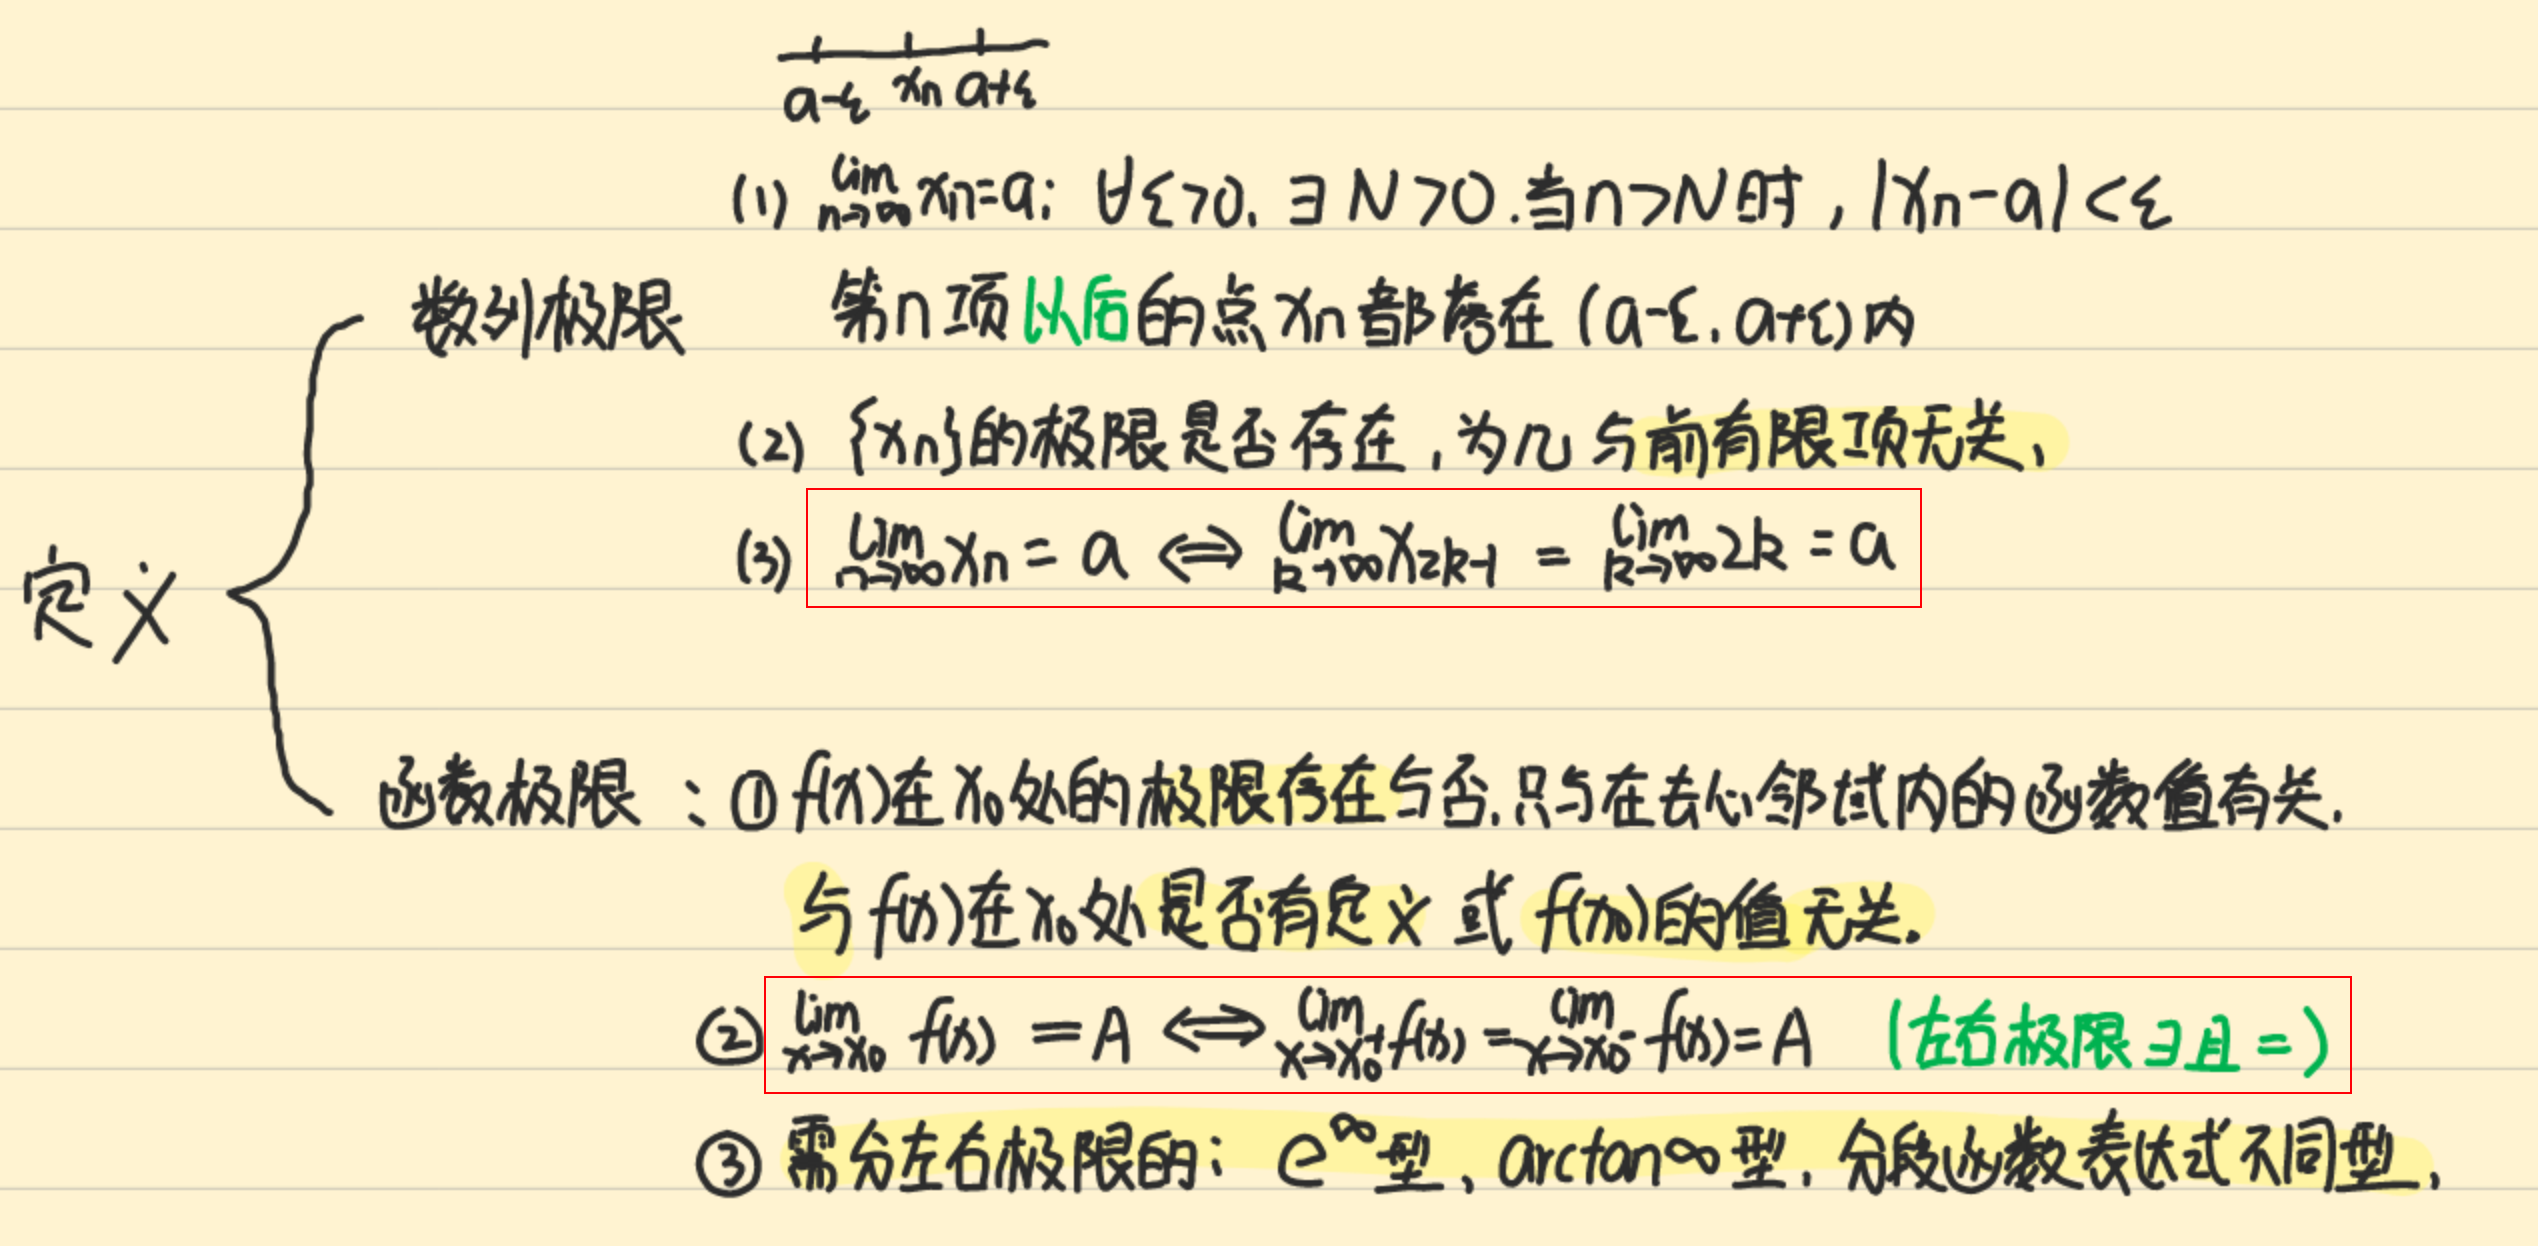 a-ε xn a+ε
(1) lim n→∞ xn=a: ∀ε>0. ∃N>0.当n>N时,|xn-a|<ε
数列极限 第n项以后的点xn都落在(a-ε,a+ε)内
(2) {xn}的极限是否存在,为几与前有限项无关、
(3) lim n→∞ xn = a ⟺ lim k→∞ x2k-1 = lim k→∞ 2k = a
定义
函数极限:① f(x)在x0处的极限存在与否,只与在去心邻域内的函数值有关.
与f(x)在x0处是否有定义或f(x0)的值无关.
② lim x→x0 f(x) = A ⟺ lim x→x0⁺ f(x) = lim x→x0⁻ f(x) = A (左右极限∃且=)
③ 需分左右极限的: e^∞型、arctan∞型.分段函数表达式不同型、